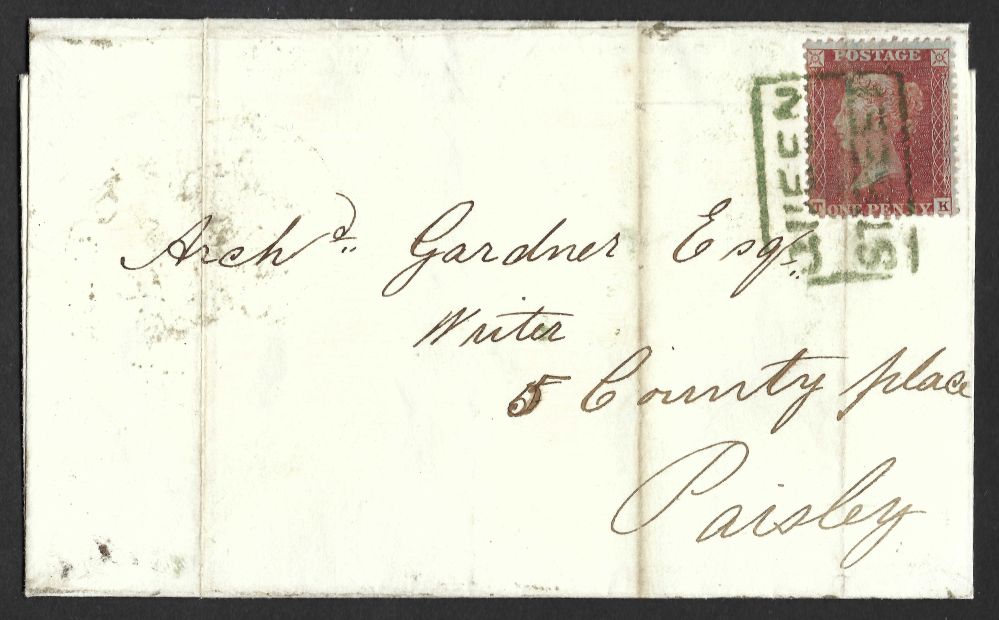 POSTAGE
T ONE PENNY K
QUEEN
STREET
Archd. Gardner Esqr.
Writer
5 County place
Paisley